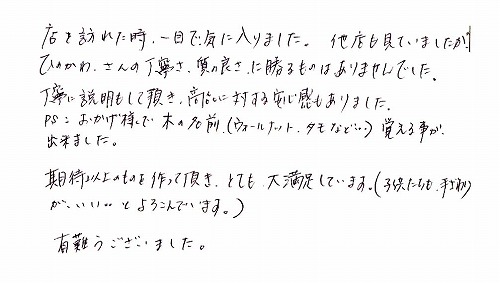 店を訪れた時、一目で気に入りました。 他店も見ていましたが
ひのかわ さんの丁寧さ、質の良さ、に勝るものはありませんでした。
丁寧に説明もして頂き、商品に対する安心感もありました。
PS:おかげ様で 木の名前、(ウォールナット、タモなど…) 覚える事が
出来ました。
期待以上のものを作って頂き、とても 大満足しています。(子供たちも、手ざわり
が、いい…とよろこんでいます。)
有難うございました。